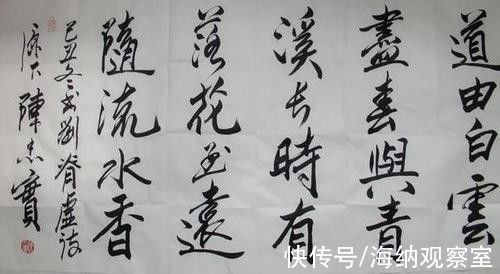 道由白雲
盡春與青
溪長時有
落花至遠
隨流水香
己丑冬書劉脊虛詩
陳志實
快传号/海纳观察室